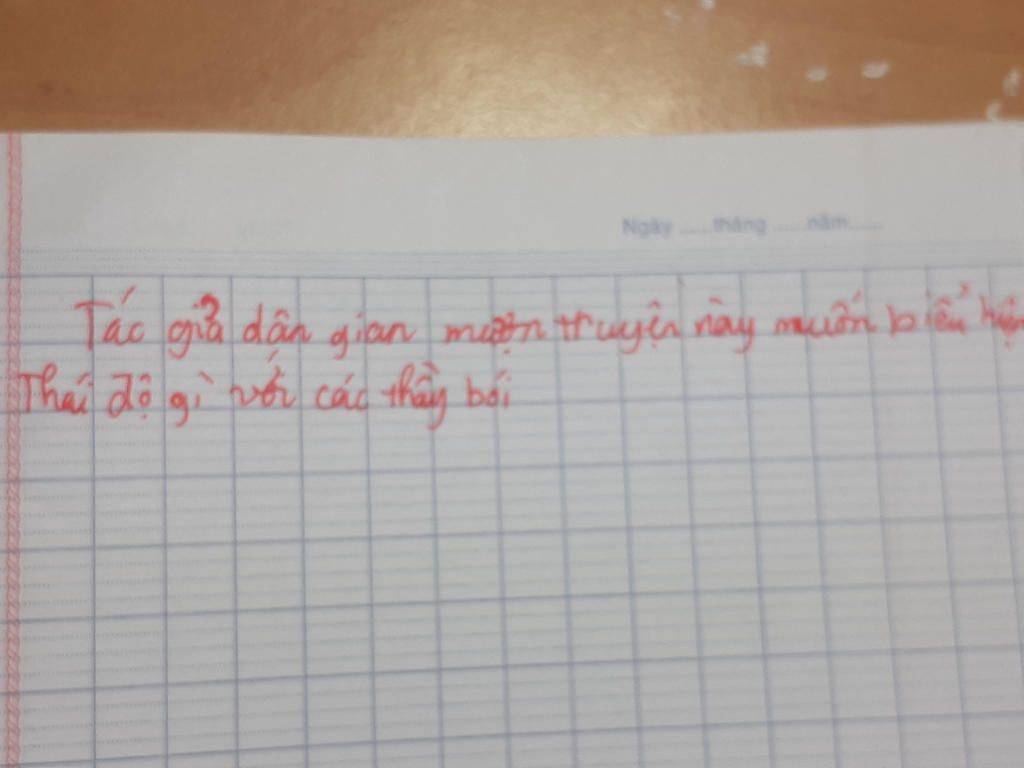 Ngày ......tháng ......năm......
Tác giả dân gian mượn truyện này muốn biểu hiện
Thái độ gì với các thầy bói